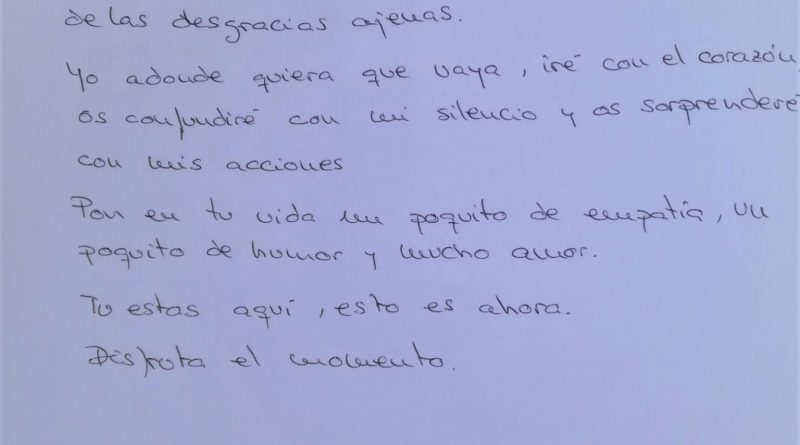 de las desgracias ajenas.
Yo adonde quiera que vaya, iré con el corazón,
os confundiré con mi silencio y os sorprenderé
con mis acciones
Pon en tu vida un poquito de empatía, un
poquito de humor y mucho amor.
Tu estas aquí, esto es ahora.
Disfruta el momento.